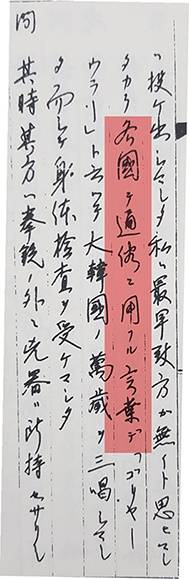 ハ投ケ出シマシタ私ハ最早致方カ無イト思ヒマシ
タカラ各國テ通俗ニ用フル言葉デ「コリヤー
ウラー」ト云フテ大韓國ノ萬歳ヲ三唱シマシ
タ而シテ身体捡査ヲ受ケマシタ
問 其時其方ハ拳銃ノ外ニ兇器ハ所持セサリシ